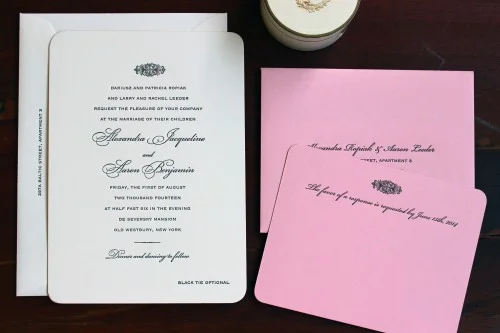 DARIUSZ AND PATRICIA KOPIAK
AND LARRY AND RACHEL LEEDER
REQUEST THE PLEASURE OF YOUR COMPANY
AT THE MARRIAGE OF THEIR CHILDREN
Alexandra Jacqueline
and
Aaron Benjamin
FRIDAY, THE FIRST OF AUGUST
TWO THOUSAND FOURTEEN
AT HALF PAST SIX IN THE EVENING
DE SEVERSKY MANSION
OLD WESTBURY, NEW YORK
Dinner and dancing to follow
BLACK TIE OPTIONAL
BALTIC STREET, APARTMENT 5
Alexandra Kopiak & Aaron Leeder
STREET, APARTMENT 5
The favor of a response is requested by June 15th, 2014